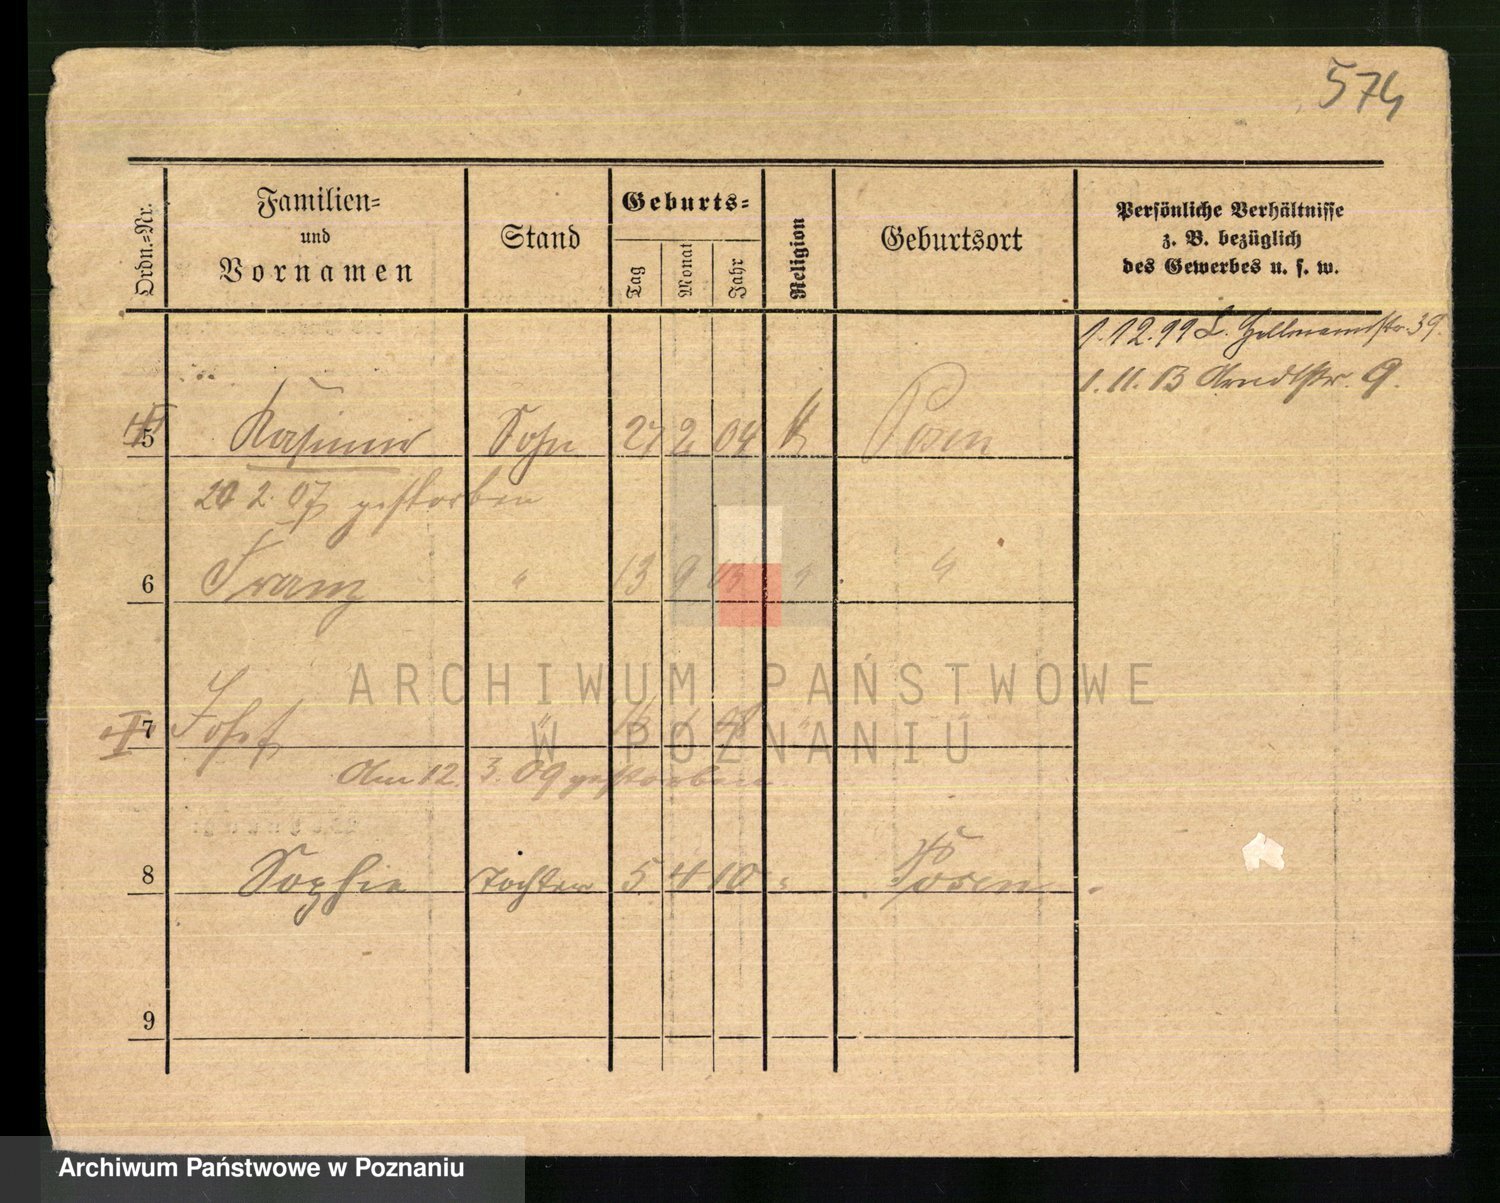 574
Ordn.-Nr.
Familien-
und
Vornamen
Stand
Geburts-
Tag
Monat
Jahr
Religion
Geburtsort
Persönliche Verhältnisse
z. B. bezüglich
des Gewerbes u. s. w.
1.12.99 39.
1.11.13 Arndtstr. 9.
5 Kasimir Sohn 27 2 04 K Posen
20 2. 07 gestorben
6 Franz " 13 9 " "
7 Josef "
Am 12. 3. 09 gestorben
8 Sophie Tochter 5 4 10 " Posen
9
ARCHIWUM PAŃSTWOWE
W POZNANIU
Archiwum Państwowe w Poznaniu